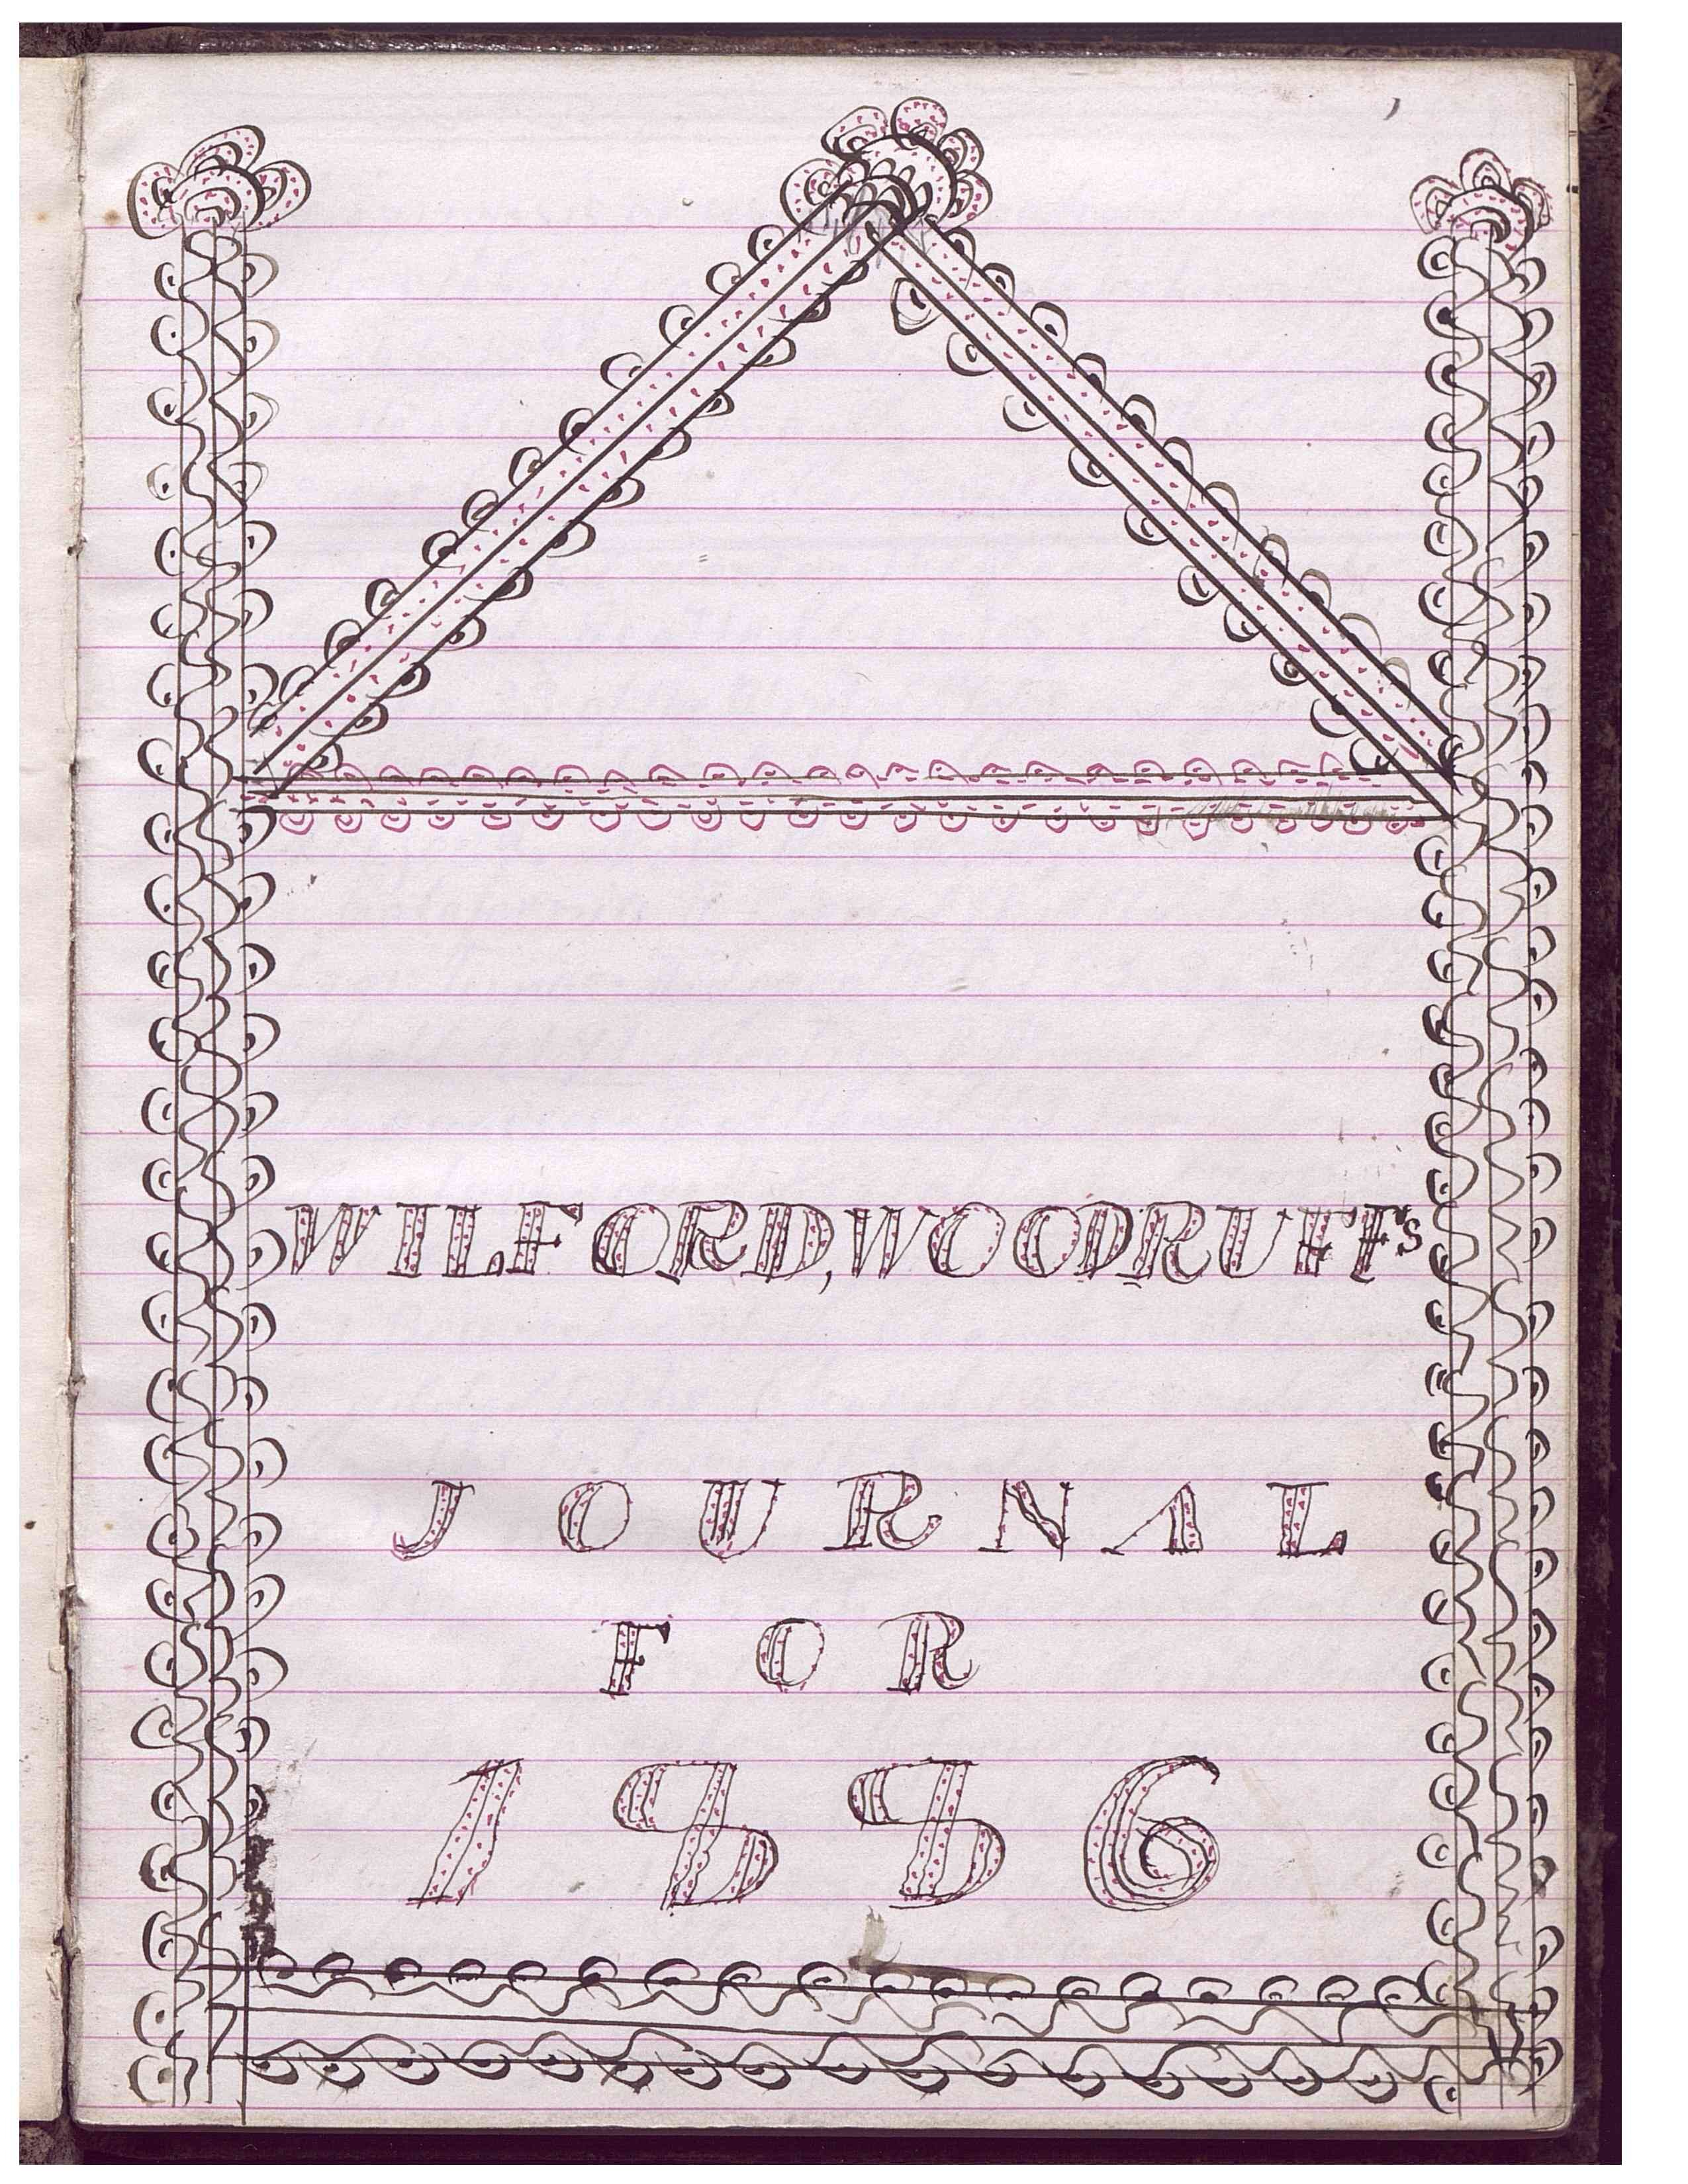 WILFORD, WOODRUFFs
JOURNAL
FOR
1886